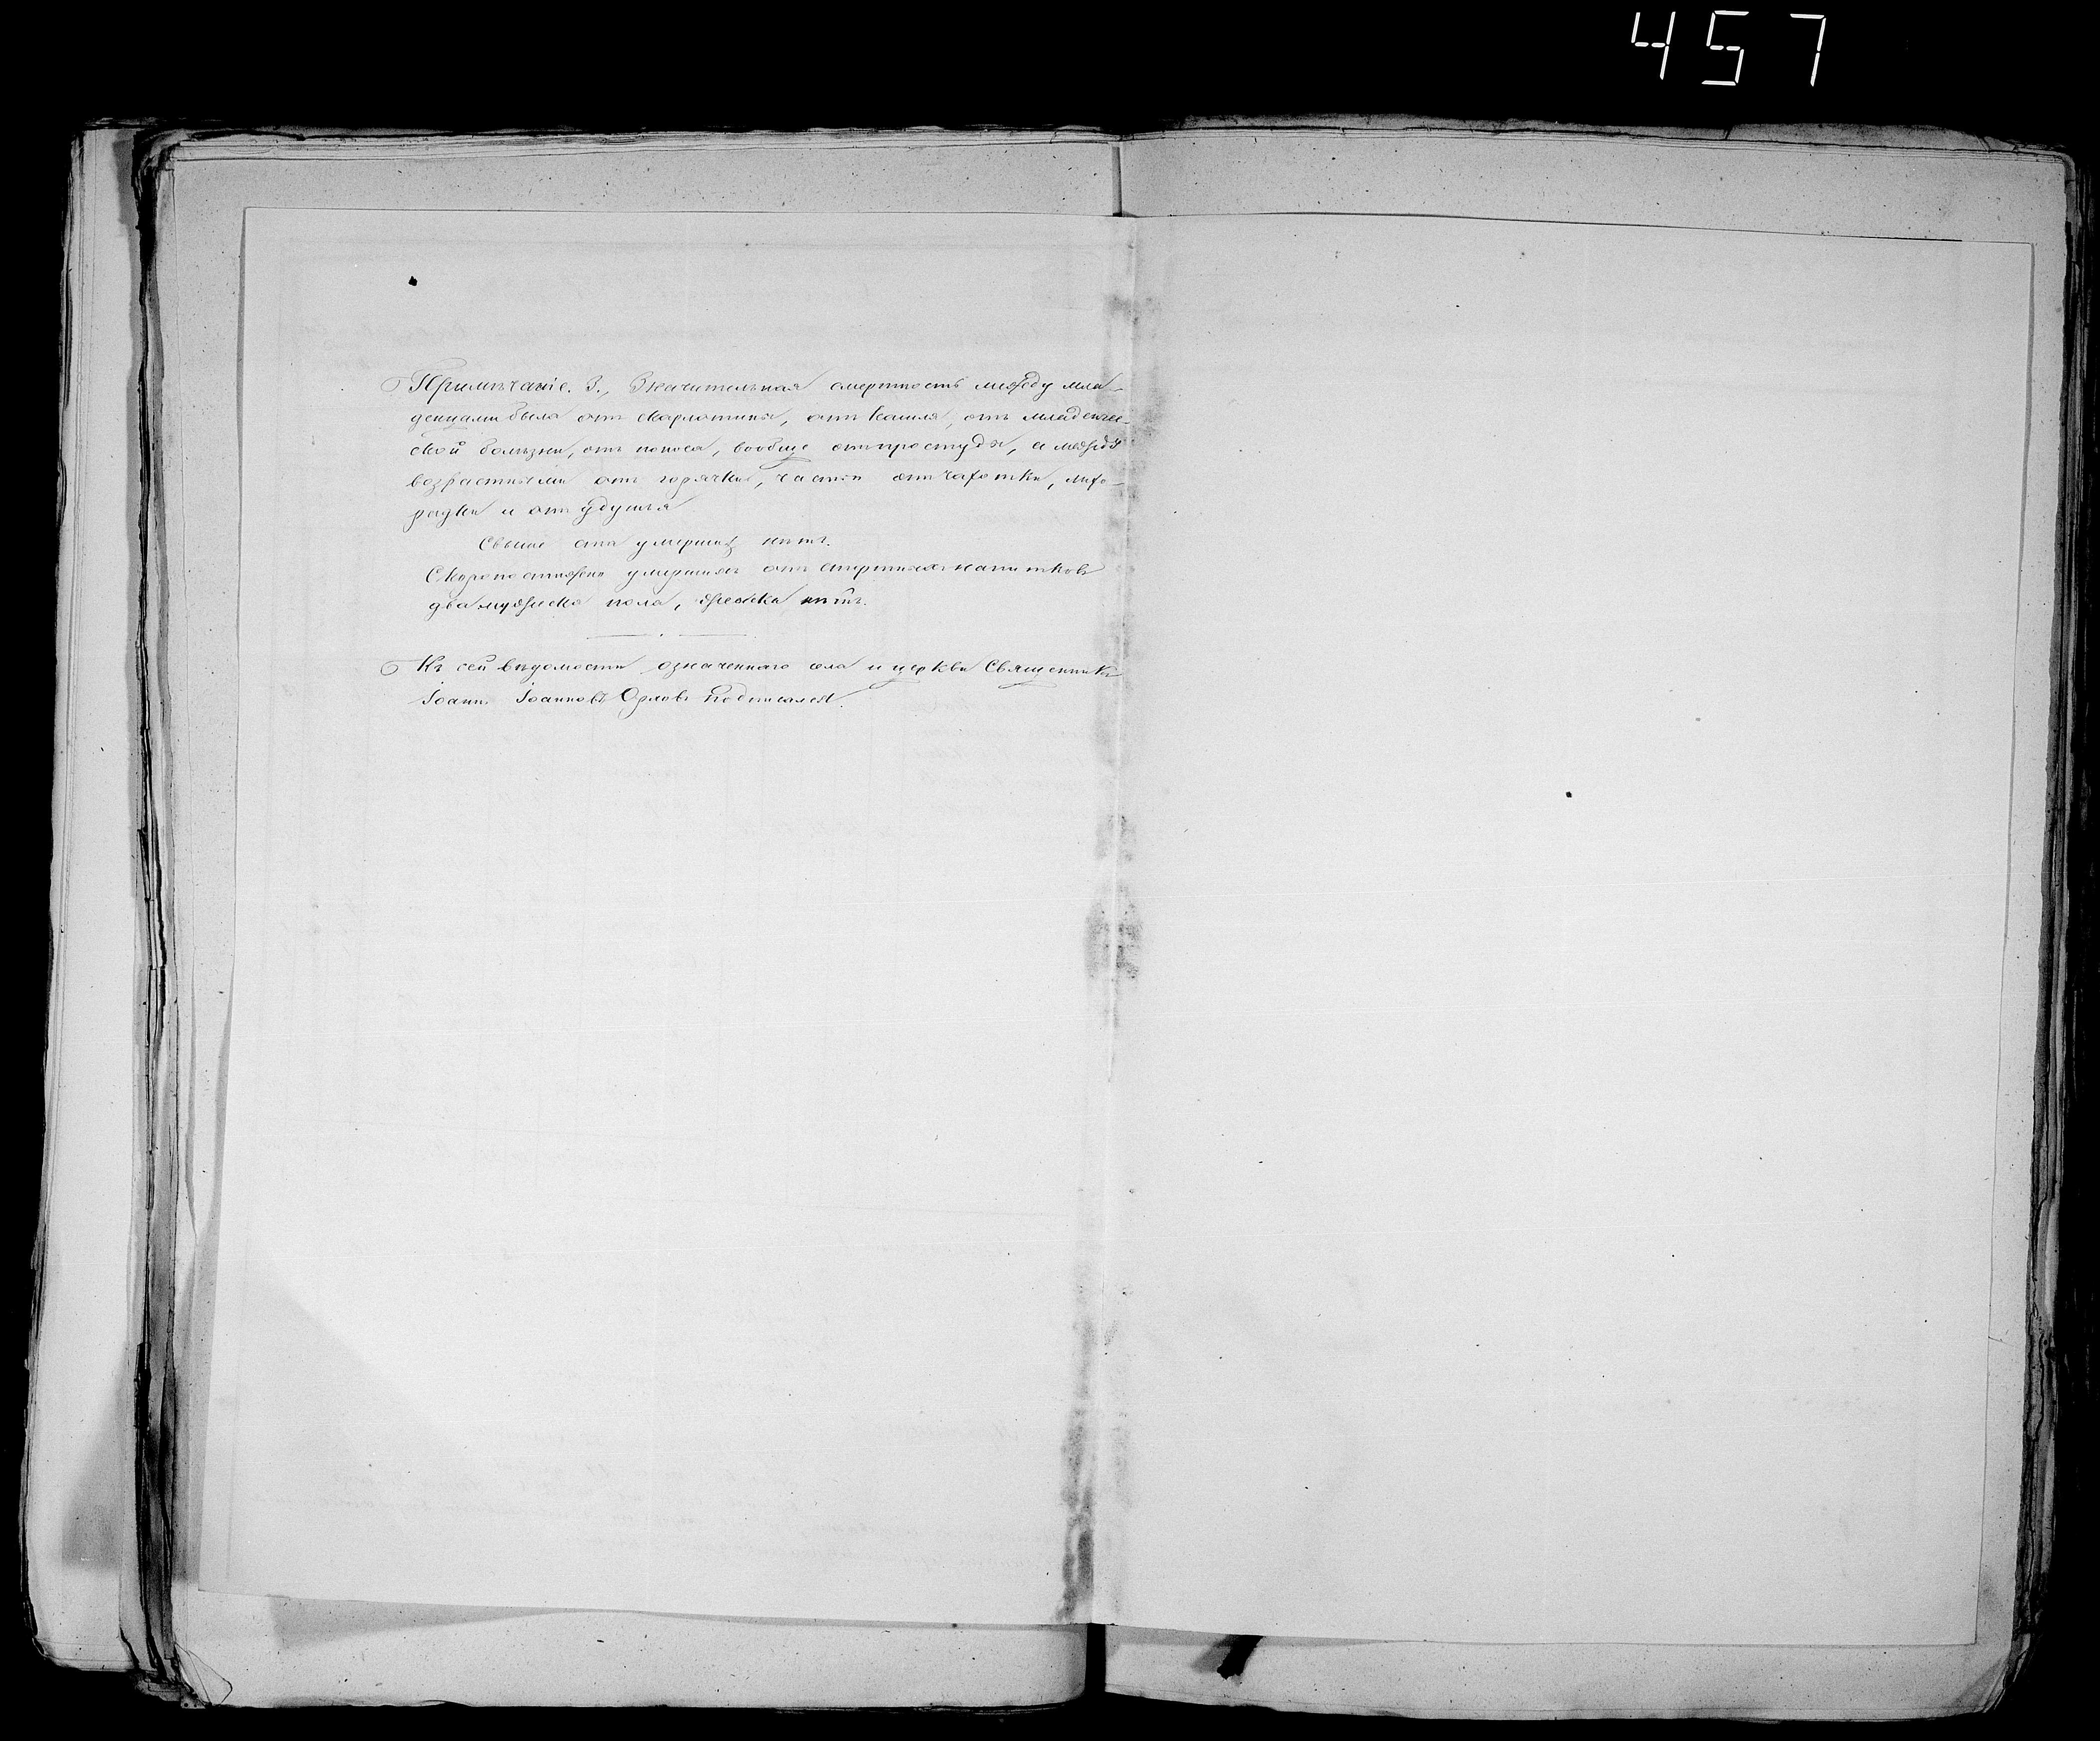 457
Примѣчаніе. 3., Значительная смертность между мла-
денцами была отъ скарлатины, отъ кашля, отъ младенче-
ской болѣзни, отъ поноса, вообще отъ простуды, а между
возрастными отъ горячки, частію отъ чахотки, лихо-
радки и отъ удушья
Свыше ста умершихъ нѣтъ.
Скоропостижно умершихъ отъ спиртныхъ напитковъ
два мужеска пола, женска нѣтъ.
Къ сей вѣдомости означеннаго села и церкви Священникъ
Іоаннъ Іоанновъ Орловъ подписался.